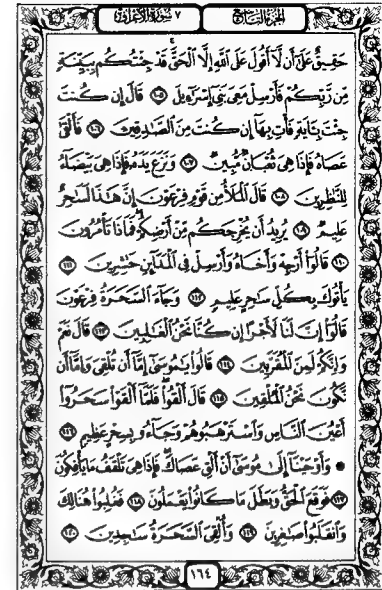 الجزء التاسع ٧ سورة الأعراف
حَقِيقٌ عَلَىٰٓ أَن لَّآ أَقُولَ عَلَى ٱللَّهِ إِلَّا ٱلْحَقَّ قَدْ جِئْتُكُم بِبَيِّنَةٍ
مِّن رَّبِّكُمْ فَأَرْسِلْ مَعِىَ بَنِىٓ إِسْرَٰٓءِيلَ ١٠٥ قَالَ إِن كُنتَ
جِئْتَ بِـَٔايَةٍ فَأْتِ بِهَآ إِن كُنتَ مِنَ ٱلصَّـٰدِقِينَ ١٠٦ فَأَلْقَىٰ
عَصَاهُ فَإِذَا هِىَ ثُعْبَانٌ مُّبِينٌ ١٠٧ وَنَزَعَ يَدَهُۥ فَإِذَا هِىَ بَيْضَآءُ
لِلنَّـٰظِرِينَ ١٠٨ قَالَ ٱلْمَلَأُ مِن قَوْمِ فِرْعَوْنَ إِنَّ هَـٰذَا لَسَـٰحِرٌ
عَلِيمٌ ١٠٩ يُرِيدُ أَن يُخْرِجَكُم مِّنْ أَرْضِكُمْ فَمَاذَا تَأْمُرُونَ
١١٠ قَالُوٓا۟ أَرْجِهْ وَأَخَاهُ وَأَرْسِلْ فِى ٱلْمَدَآئِنِ حَـٰشِرِينَ ١١١
يَأْتُوكَ بِكُلِّ سَـٰحِرٍ عَلِيمٍ ١١٢ وَجَآءَ ٱلسَّحَرَةُ فِرْعَوْنَ
قَالُوٓا۟ إِنَّ لَنَا لَأَجْرًا إِن كُنَّا نَحْنُ ٱلْغَـٰلِبِينَ ١١٣ قَالَ نَعَمْ
وَإِنَّكُمْ لَمِنَ ٱلْمُقَرَّبِينَ ١١٤ قَالُوا۟ يَـٰمُوسَىٰٓ إِمَّآ أَن تُلْقِىَ وَإِمَّآ أَن
نَّكُونَ نَحْنُ ٱلْمُلْقِينَ ١١٥ قَالَ أَلْقُوا۟ فَلَمَّآ أَلْقَوْا۟ سَحَرُوٓا۟
أَعْيُنَ ٱلنَّاسِ وَٱسْتَرْهَبُوهُمْ وَجَآءُو بِسِحْرٍ عَظِيمٍ ١١٦
۞ وَأَوْحَيْنَآ إِلَىٰ مُوسَىٰٓ أَنْ أَلْقِ عَصَاكَ فَإِذَا هِىَ تَلْقَفُ مَا يَأْفِكُونَ
١١٧ فَوَقَعَ ٱلْحَقُّ وَبَطَلَ مَا كَانُوا۟ يَعْمَلُونَ ١١٨ فَغُلِبُوا۟ هُنَالِكَ
وَٱنقَلَبُوا۟ صَـٰغِرِينَ ١١٩ وَأُلْقِىَ ٱلسَّحَرَةُ سَـٰجِدِينَ ١٢٠
١٦٤